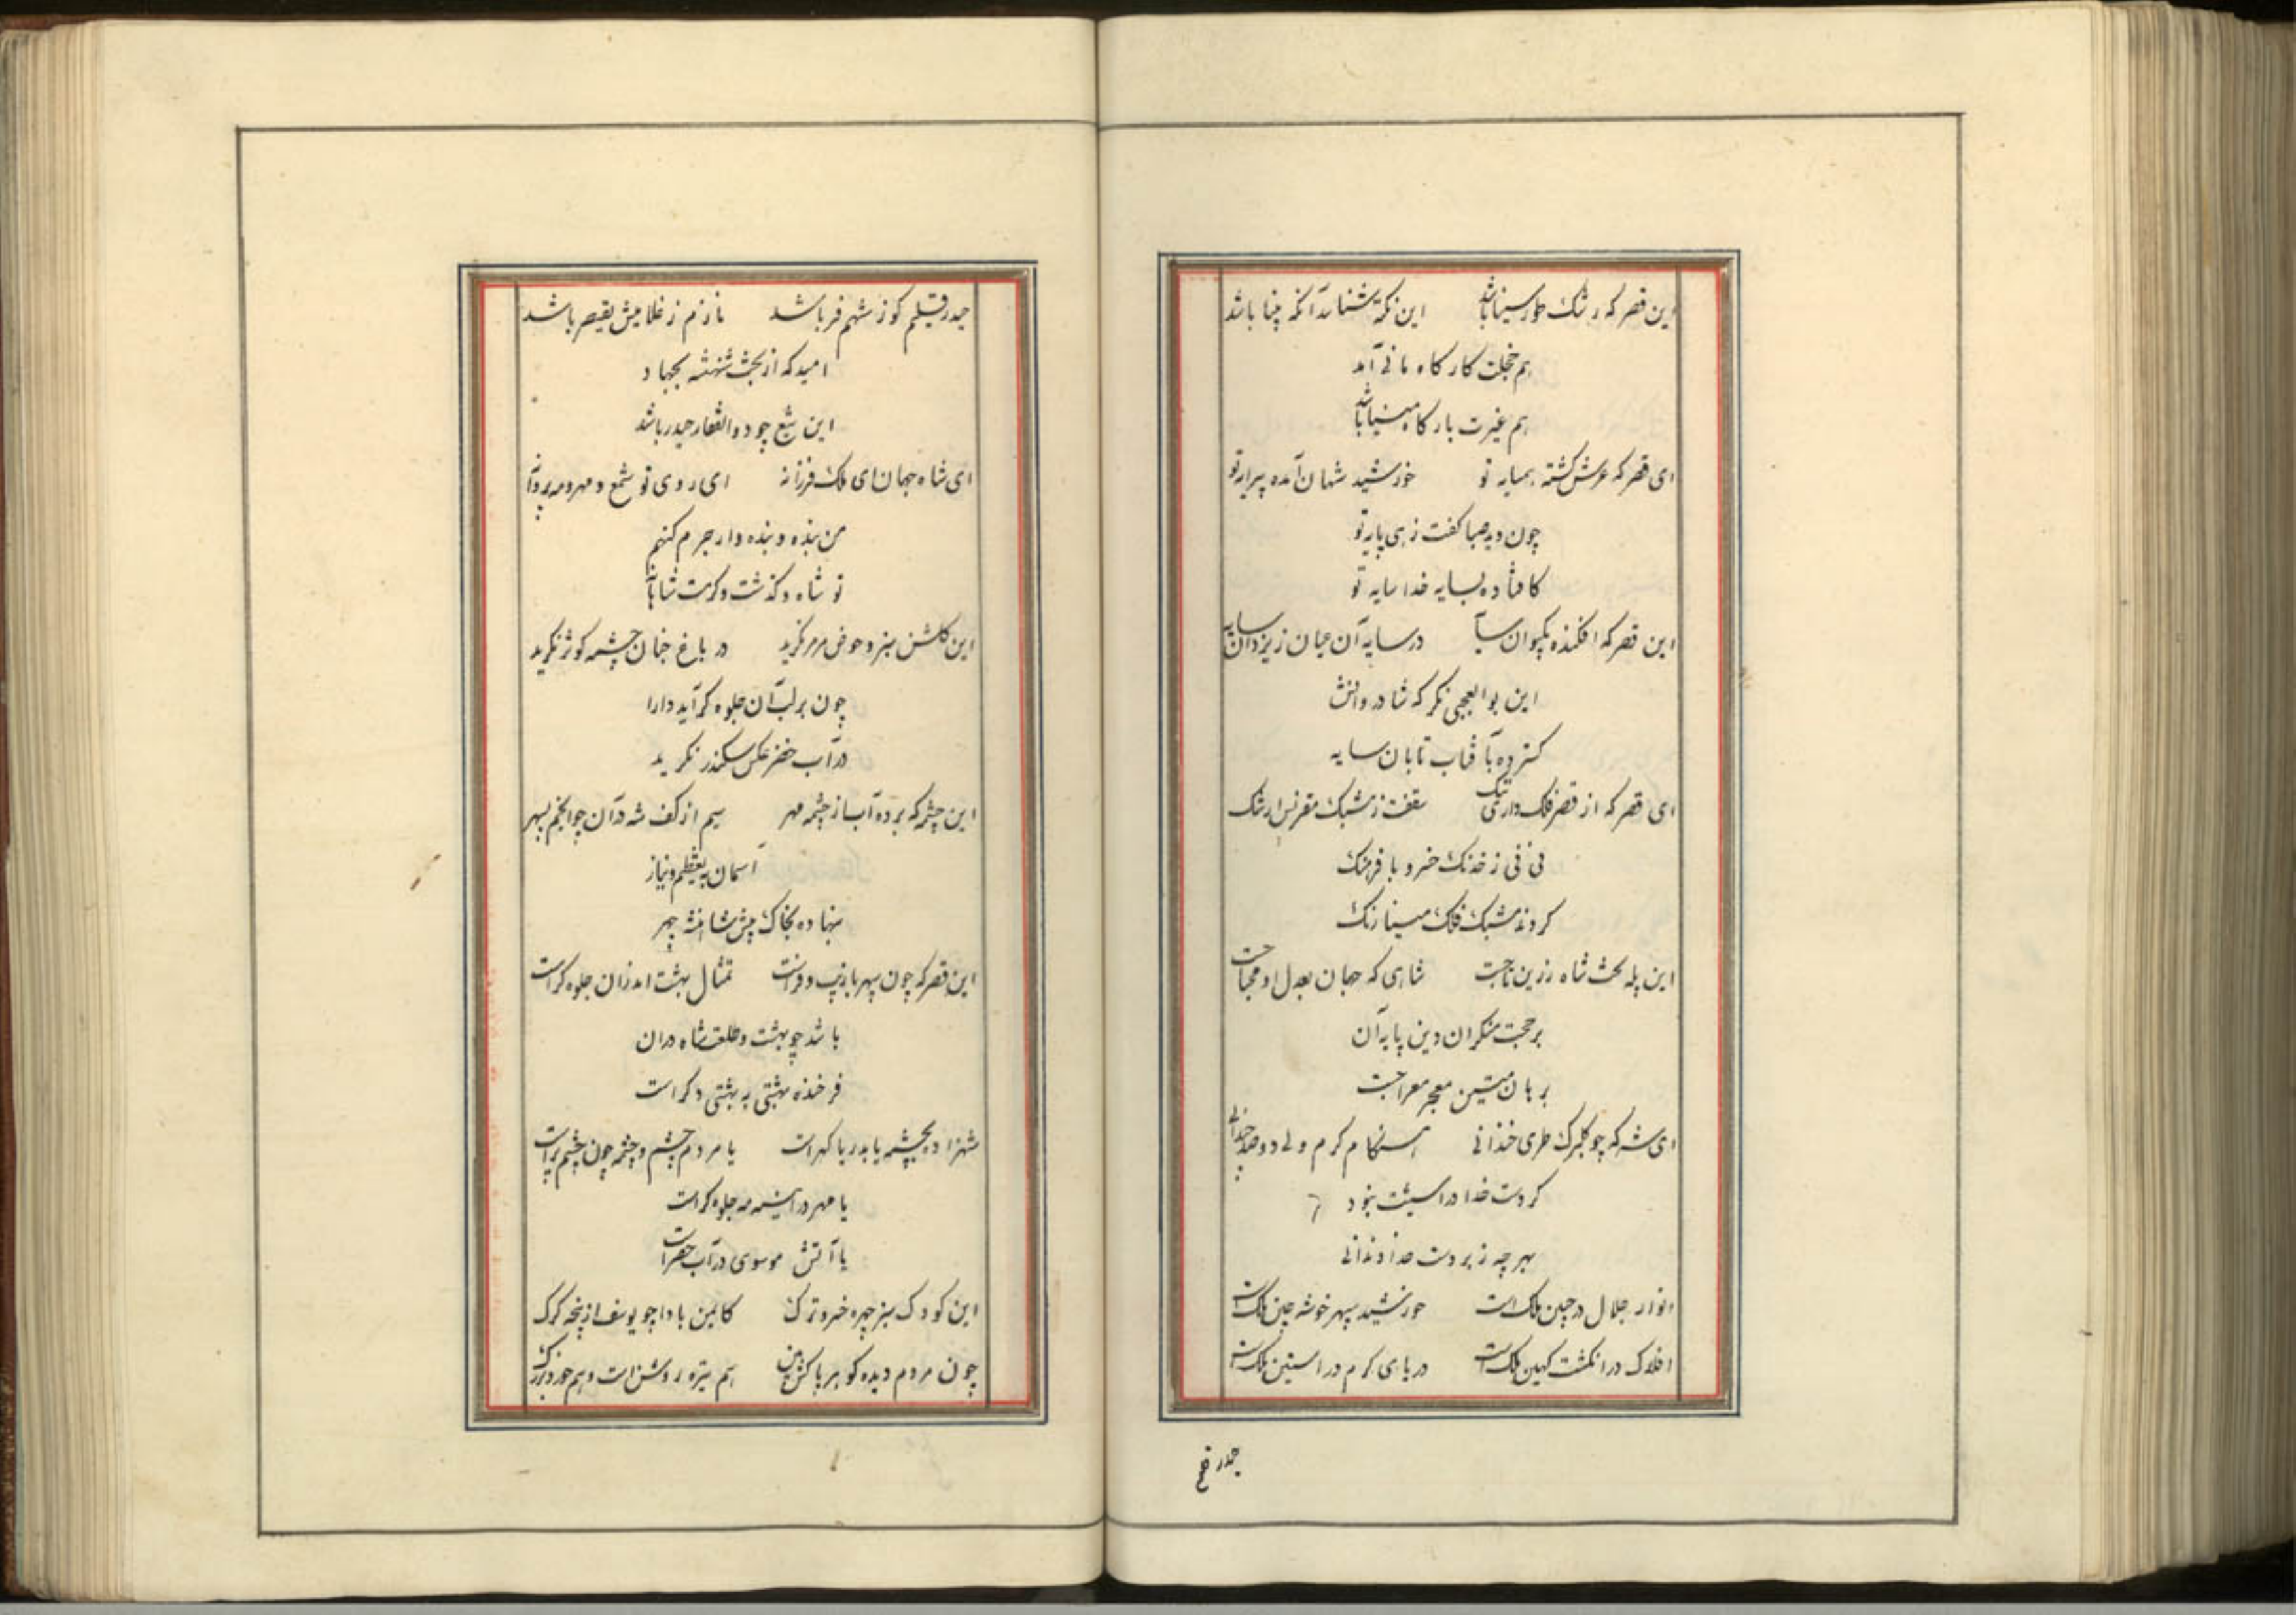 این قصر که رشک طور سینا باشد این نکته شناسد آنکه بینا باشد
هم خجلت کارگاه مانی آمد
هم غیرت بارگاه مینا باشد
ای قصر که عرش گشته همسایه تو خورشید شهان آمده پیرایه تو
چون دید صبا گفت زهی پایه تو
کافتاده بسایه خدا سایه تو
این قصر که افکنده بکیوان سایه در سایه آن عیان ز یزدان سایه
این بوالعجبی نگر که شادروانش
گسترده بآفتاب تابان سایه
ای قصر که از قصر فلک داری ننگ سقفت ز مشبک مقرنس ارتنگ
نی نی ز خدنگ خسرو با فرهنگ
کردند مشبک فلک مینا رنگ
این پله تخت شاه زرین تاجست شاهی که جهان بعدل او محتاجست
بر حجت منکران دین پایه آن
برهان متین معجز معراجست
ای شه که چو گلبرگ طری خندانی هنگام کرم ولی دو صد چندانی
کردت خدا در
بهر چه ز بر دست خداوندانی
انوار جلال در جبین ملک است خورشید سپهر خوشه چین ملک است
افلاک در انگشت کهین ملک است دریای کرم در آستین ملک است
حیدر
حیدر کوز شهم فر باشد نازم ز غلامیش بقیصر باشد
امید که از بخت شهنشه بجهاد
این تیغ چو ذوالفقار حیدر باشد
ای شاه جهان ای ملک فرزانه ای روی تو شمع و مهر و مه پروانه
من بنده و بنده وار جرم کنهم
تو شاه و گذشت و کرمت شاهانه
این گلشن سبز و حوض مرمر نگرید در باغ جنان چشمه کوثر نگرید
چون بر لب آن جلوه گر آید دارا
در آب خضر عکس سکندر نگرید
این چشمه که برده آب از چشمه مهر سیم از کف شه در آن چو انجم بسپهر
آسمان پی تعظیم و نیاز
بنهاده بخاک پیش شاهنشه چهر
این قصر که چون سپهر با زیب و فر است تمثال بهشت اندران جلوه گر است
باشد چو بهشت و طلعت شاه در آن
فرخنده بهشتی به بهشتی دگر است
شهزاده بچشمه یا بدریا گهر است یا مردم چشم و چشمه چون چشم تر است
یا مهر در آینه مه جلوه گر است
یا آتش موسوی در آب خضر است
این کودک سبز چهره خسرو ترک کایمن بادا چو یوسف از پنجه گرگ
چون مردم دیده کو هر باکش بین هم تیره روشن است و هم خورد بزرگ